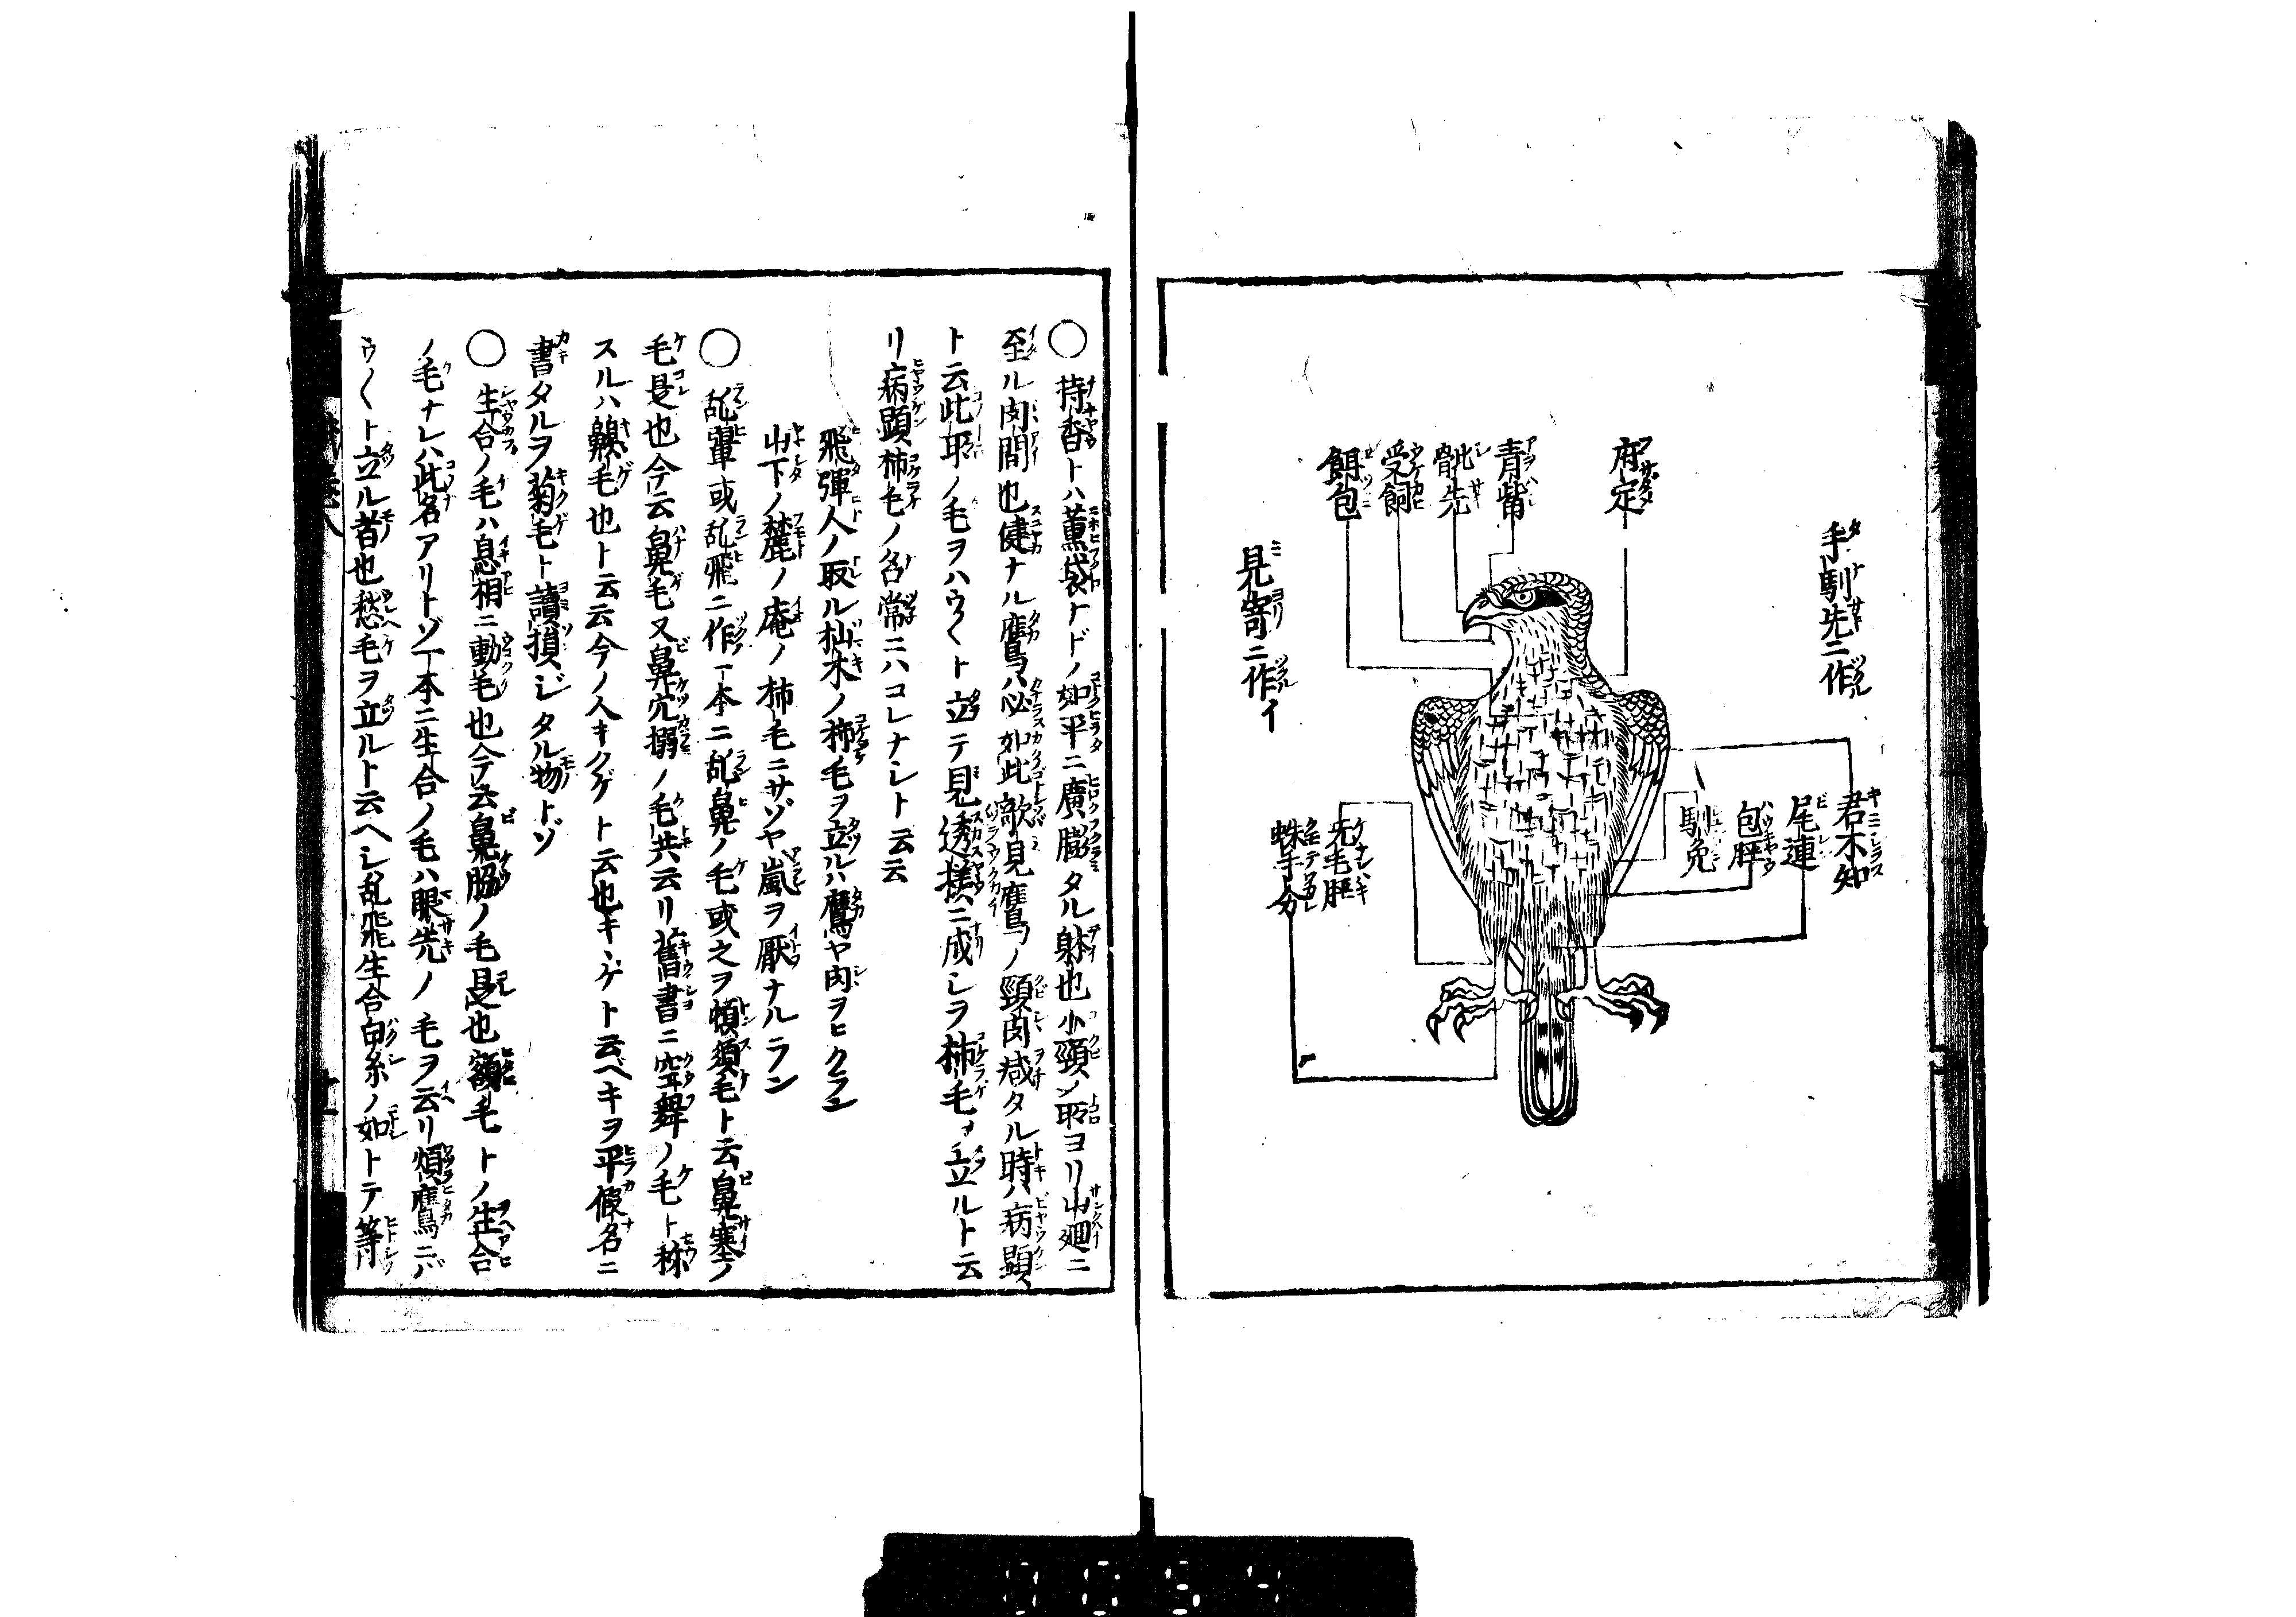 手馴先ニ作
府定
青觜
觜先
受飼
餌包
見寄ニ作イ
君不知
尾連
包脛
馴兔
先毛脛
蛛手分
○持香トハ薫袋ナドノ如平ニ廣膨タル躰也小頸ノ所ヨリ山廻ニ
至ル肉間也健ナル鷹ハ必如此歌見鷹ノ頸肉減タル時ハ病顕ス
ト云此所ノ毛ヲハウ〱ト立テ見透様ニ成シヲ柿毛ヲ立ルト云
リ病顕柿毛ノ名常ニハコレナレト云云
飛彈人ノ取ル杣木ノ柿毛ヲ立ルハ鷹ヤ肉ヲヒクラム
山下ノ麓ノ庵ノ柿毛ニサゾヤ嵐ヲ厭ナルラン
○乱軰或乱飛ニ作一本ニ乱鼻ノ毛或之ヲ煩須毛ト云鼻塞ノ
毛是也今云鼻毛又鼻穴搦ノ毛共云リ舊書ニ空舞ノ毛ト称
スルハ毛也ト云云今ノ人キクゲト云也キヽゲト云ベキヲ平假名ニ
書タルヲ菊毛ト讀損ジタル物トゾ
○生合ノ毛ハ息相ニ動毛也今云鼻脇ノ毛是也額毛トノ生合
ノ毛ナレハ此名アリトゾ一本ニ生合ノ毛ハ眼先ノ毛ヲ云リ煩鷹ニハ
ウ〱ト立ル者也愁毛ヲ立ルト云ヘシ乱飛生合白糸ノ如トテ等